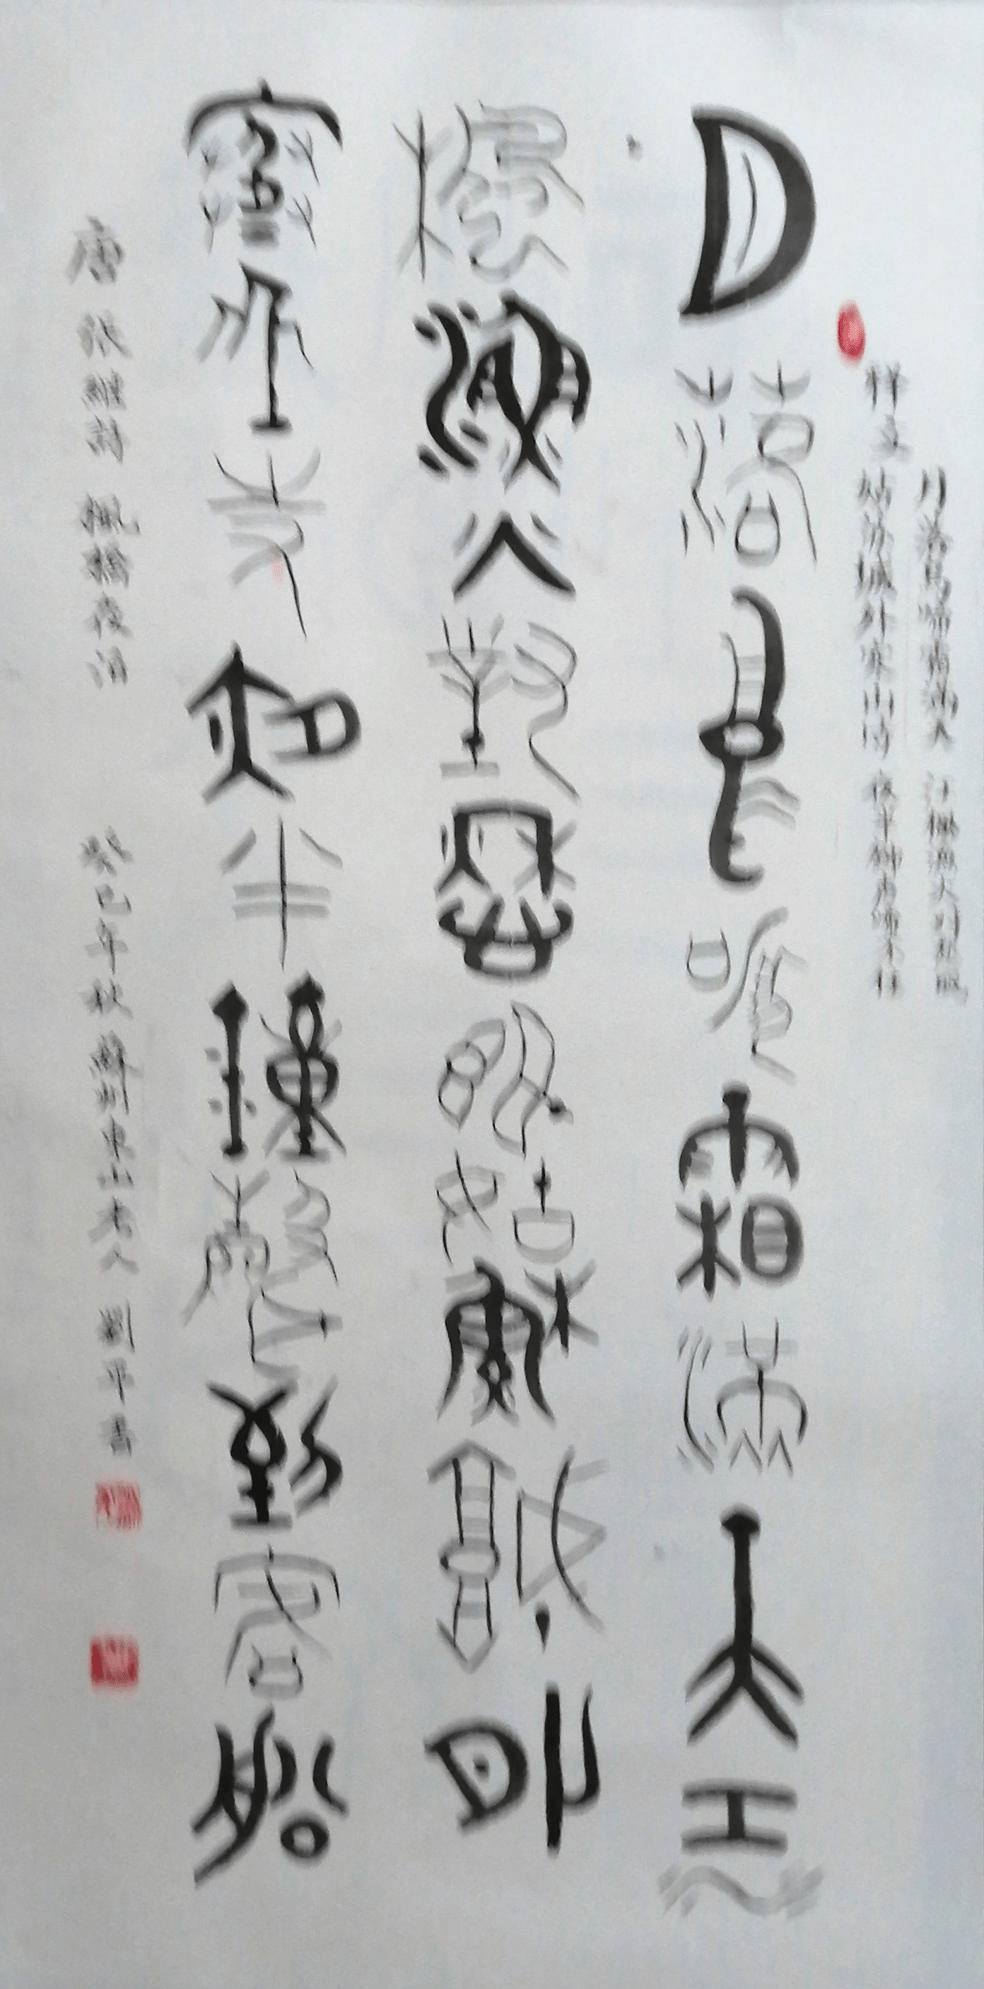 月落烏啼霜滿天 江楓漁火對愁眠
釋文 姑苏城外寒山寺 夜半鐘聲到客船
月落烏啼霜滿天江
楓漁火對愁眠姑蘇城外
寒山寺夜半鐘聲到客船
唐 張繼詩 楓橋夜泊 癸巳年秋 蘇州東山老人 劉平書